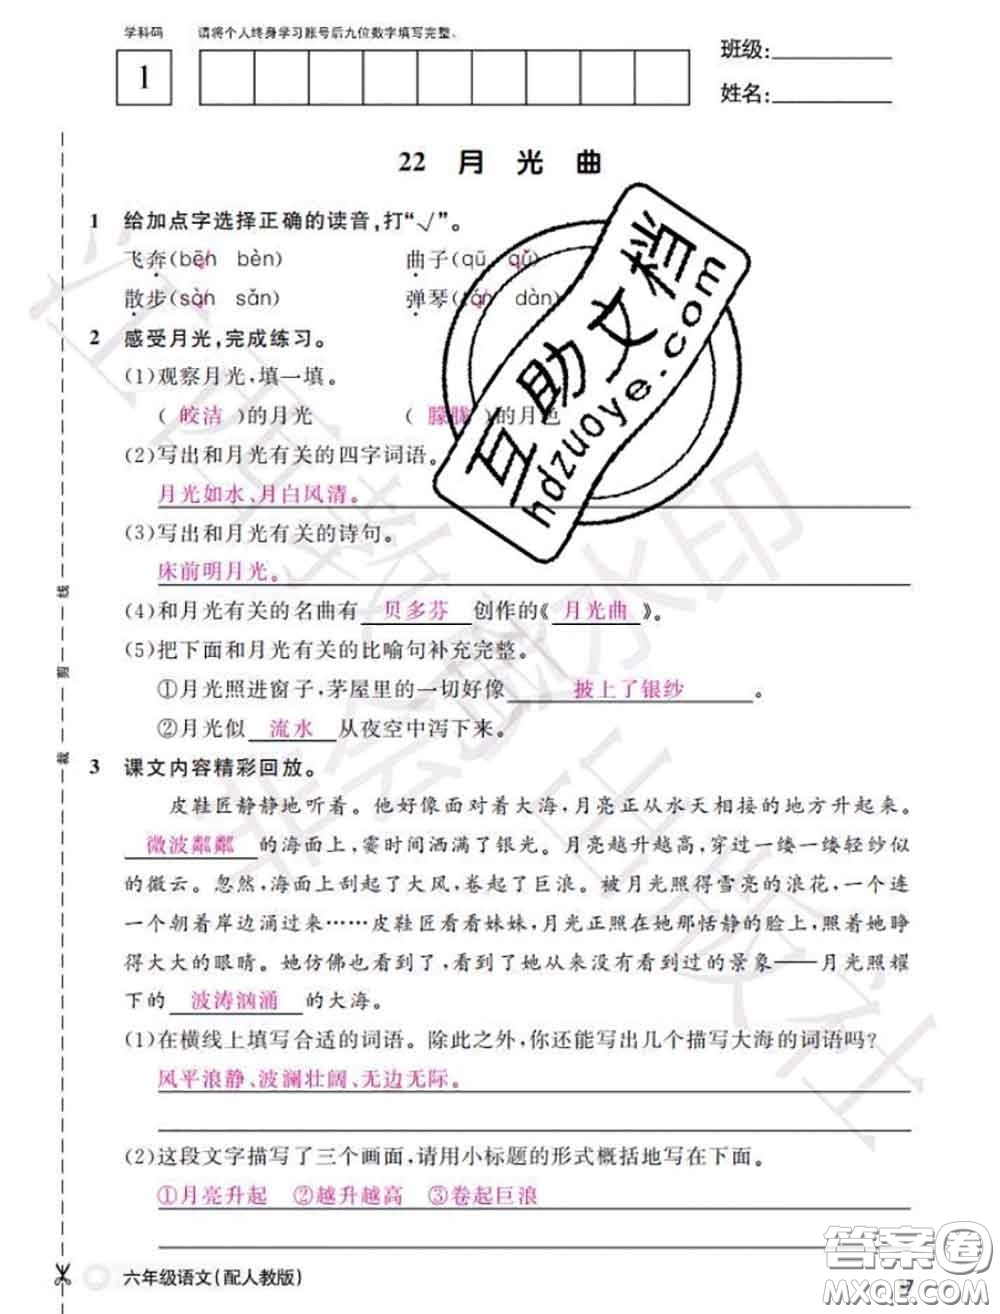 学科码 请将个人终身学习账号后九位数字填写完整。
1
班级:
姓名:
22 月光曲
1 给加点字选择正确的读音,打“√”。
飞奔(bēn bèn) 曲子(qū qǔ)
散步(sàn sǎn) 弹琴(tán dàn)
2 感受月光,完成练习。
(1)观察月光,填一填。
(皎洁)的月光 (朦胧)的月色
(2)写出和月光有关的四字词语。
月光如水、月白风清。
(3)写出和月光有关的诗句。
床前明月光。
(4)和月光有关的名曲有 贝多芬 创作的《月光曲》。
(5)把下面和月光有关的比喻句补充完整。
①月光照进窗子,茅屋里的一切好像 披上了银纱 。
②月光似 流水 从夜空中泻下来。
3 课文内容精彩回放。
皮鞋匠静静地听着。他好像面对着大海,月亮正从水天相接的地方升起来。
微波粼粼 的海面上,霎时间洒满了银光。月亮越升越高,穿过一缕一缕轻纱似
的微云。忽然,海面上刮起了大风,卷起了巨浪。被月光照得雪亮的浪花,一个连
一个朝着岸边涌过来……皮鞋匠看看妹妹,月光正照在她那恬静的脸上,照着她睁
得大大的眼睛。她仿佛也看到了,看到了她从来没有看到过的景象——月光照耀
下的 波涛汹涌 的大海。
(1)在横线上填写合适的词语。除此之外,你还能写出几个描写大海的词语吗?
风平浪静、波澜壮阔、无边无际。
(2)这段文字描写了三个画面,请用小标题的形式概括地写在下面。
①月亮升起 ②越升越高 ③卷起巨浪
六年级语文(配人教版)
裁 剪 线
互助文档
hdzuoye.com
答案卷